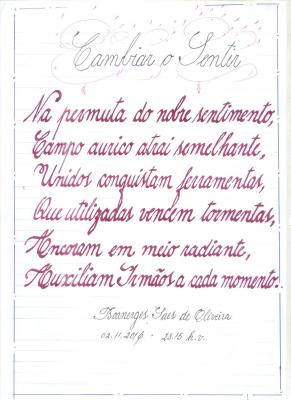 Cambiar o Sentir
Na permuta do nobre sentimento,
Campo aurico atrai semelhante,
Unidos conquistam ferramentas,
Que utilizadas vencem tormentas,
Ancoram em meio radiante,
Auxiliam Irmãos a cada momento.
Boanerges Saes de Oliveira
02.11.2016 - 23.15 h.v.